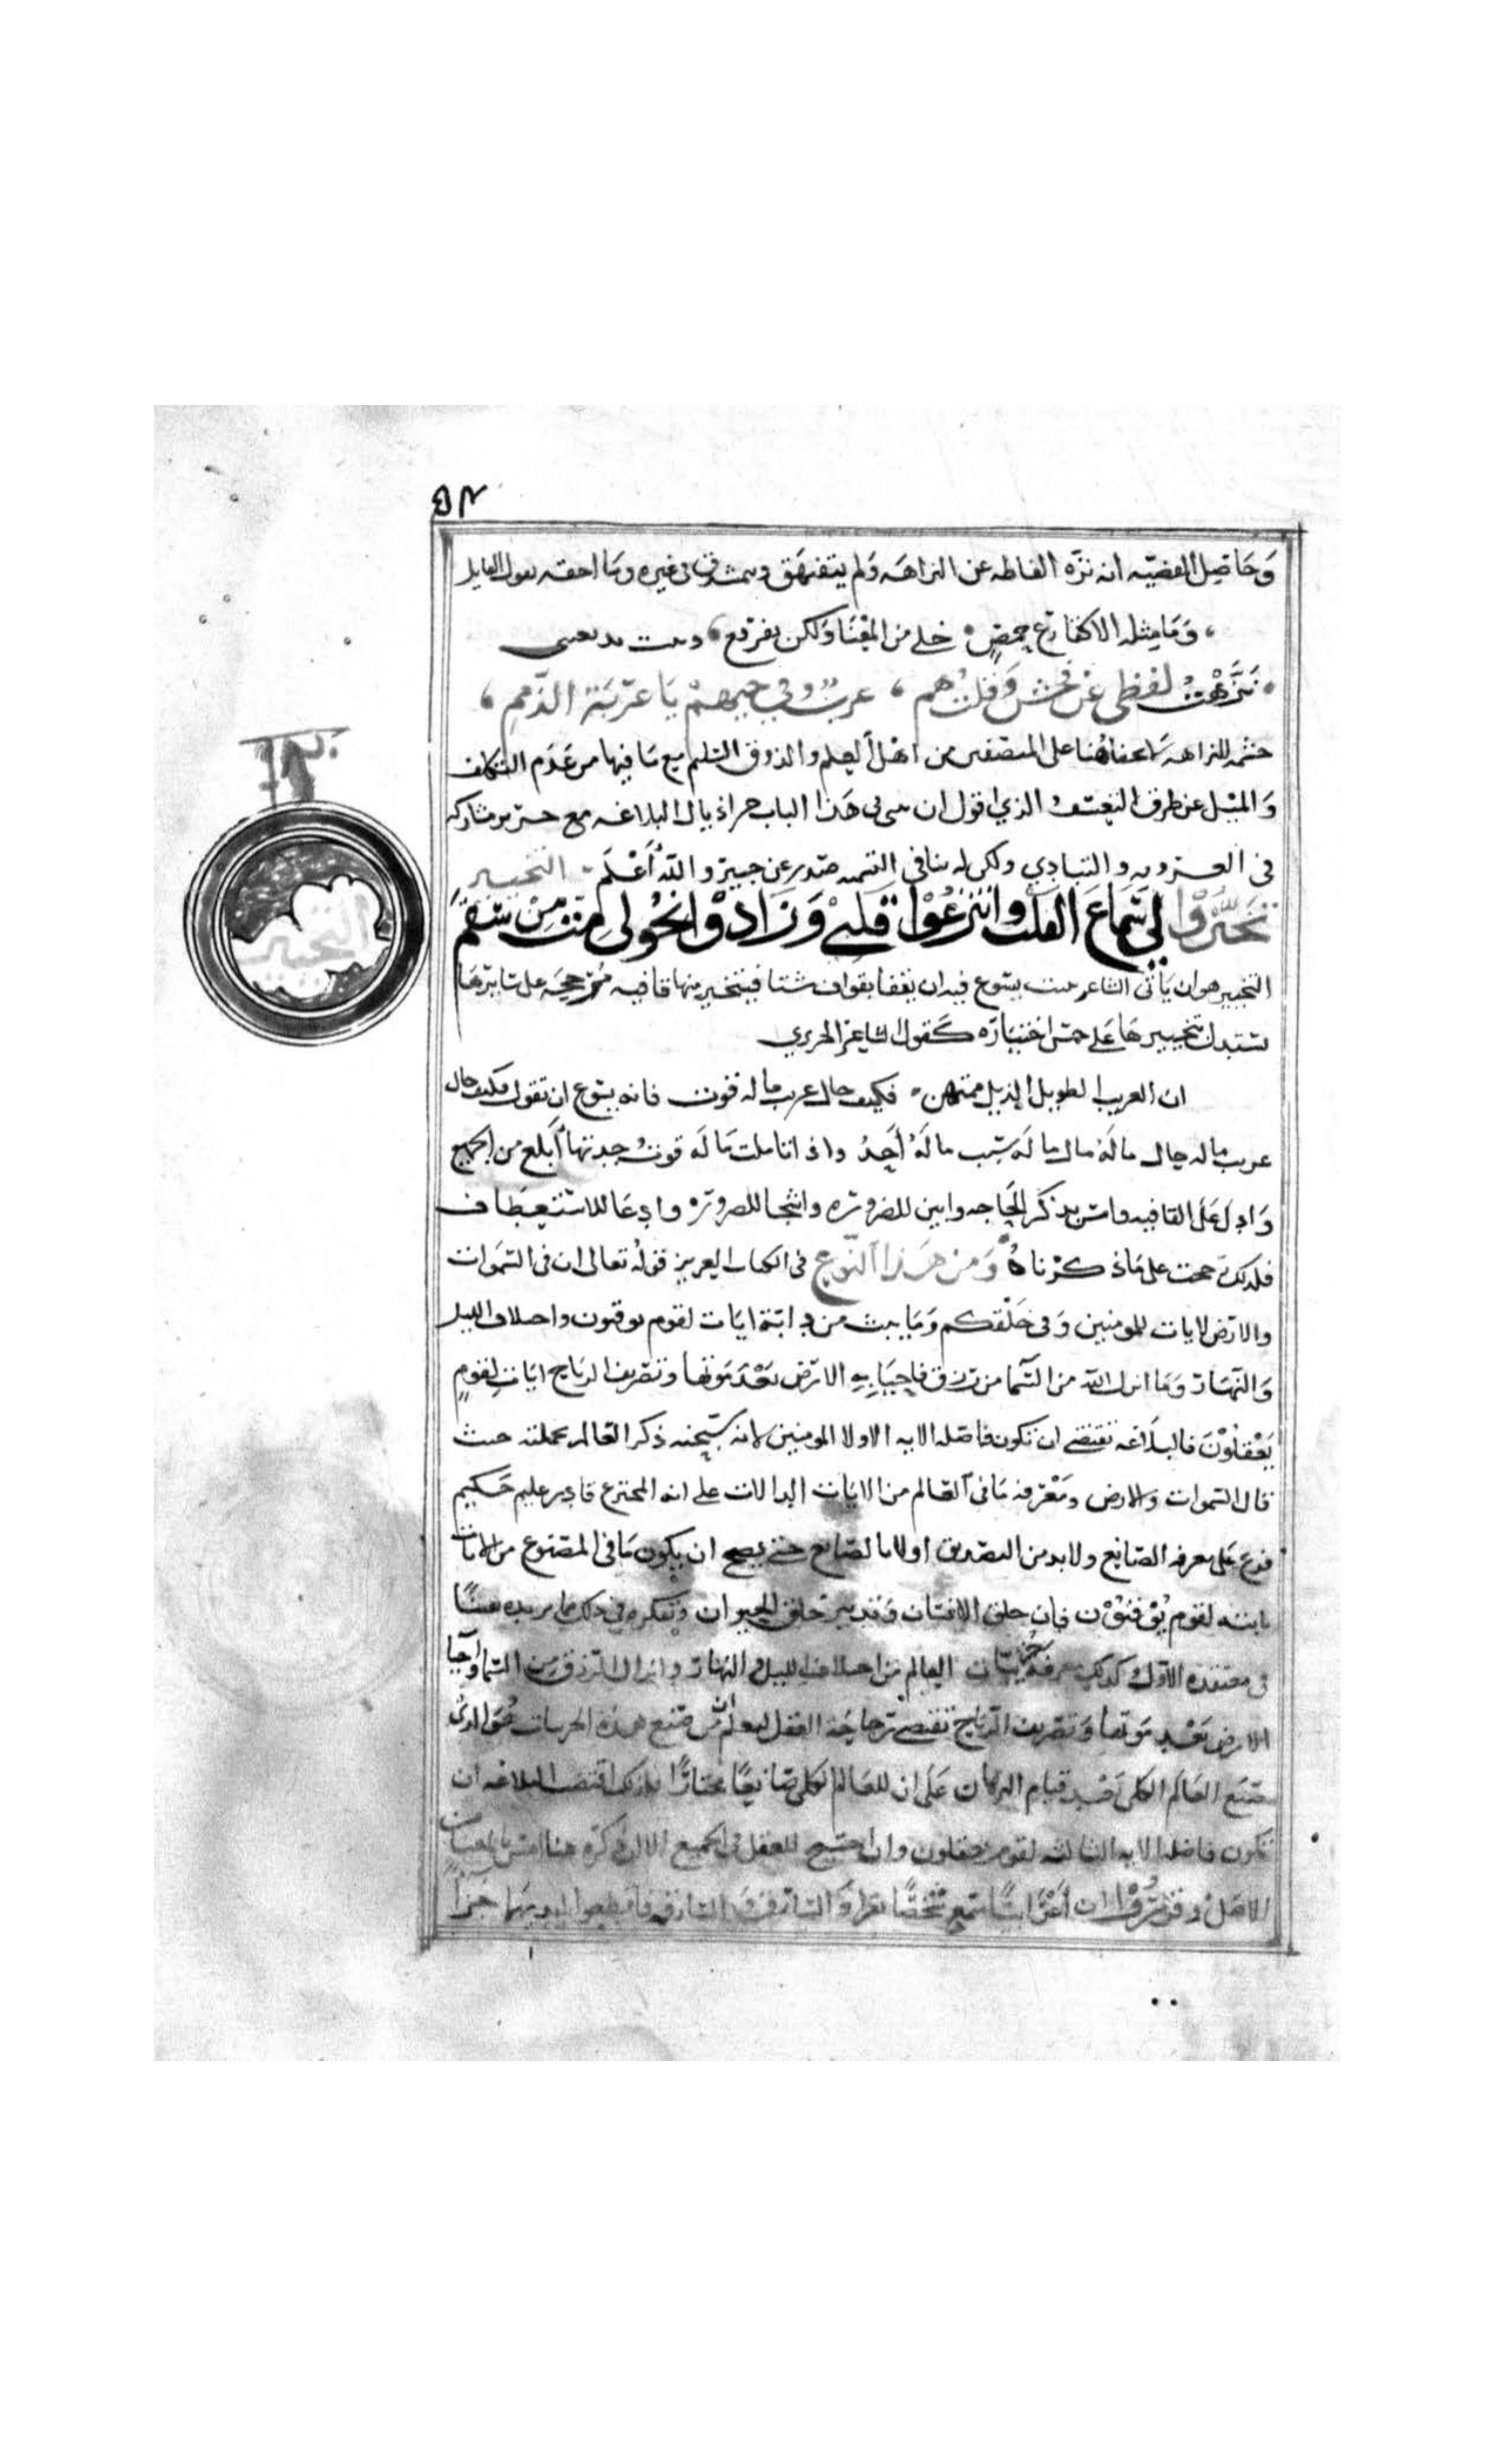 وحاصل القضيه انه نزه الفاظه عن النزاهه ولم يتفيهق ويتشدق في غيره وما احقه بقول القايل
وما مثله الا كفارغ حمص خلي من المعنا ولكن يفرقع وبيت بديعيتي
نزهت لفظي عن فحش وقلت هم عرب وفي حيهم يا غربة الذمم
حشمه النزاهه ما تخفا هنا على المنصفين من اهل العلم والذوق السليم مع ما فيها من عدم التكلف
والميل عن طرق التعسف الذي اقول ان في هذا الباب جر اذيال البلاغه مع
في و ولكن له بنا في التسميه والله أعلم التخيير
تخيروا لي سماع العذل وانتزعوا قلبي وزادوا نحولي مت من سقم
التخيير هو ان يأتي الشاعر ببيت يسوغ فيه ان يقفا بقواف شتا فيتخير منها قافيه مرجحة على سايرها
يستدل بتخييرها على حسن اختياره كقول الشاعر الحريري
ان الغريب الطويل الذيل ممتهن فكيف حال غريب ما له قوت فانه يسوغ ان تقول فكيف حال
غريب ما له حال ما له مال ما له سبب ما له أحد واذا تاملت ما له قوت وجدتها أبلغ من الجميع
وادل على القافيه وامس بذكر الحاجه وابين للضروره واشجا للصروره وادعا للاستعطاف
فلذلك رجحت على ما ذكرناه ومن هذا النوع في الكتاب العزيز قوله تعالى ان في السموات
والارض لايات للمومنين وفي خلقكم وما يبث من دابة ايات لقوم يوقنون واختلاف الليل
والنهار وما انزل الله من السما من رزق فاحيا به الارض بعد موتها وتصريف الرياح ايات لقوم
يعقلون فالبلاغه تقتضي ان تكون فاصله الايه الاولا المومنين لانه سبحنه ذكر العالم بجملته حيث
قال السموات والارض ومعرفه ما في العالم من الايات الدالات على انه المخترع قادر عليم حكيم
فرع على معرفه الصانع ولا بد من التصديق اولا بالصانع حتى يصح ان يكون ما في المصنوع من الايات
لقوم يوقنون فان خلق الانسان وتدبير خلق الحيوان وتفكره في ذلك ما يزيده يقينا
في معتقده الاول كذلك معرفة جزييات العالم من اختلاف الليل والنهار وانزال الرزق من السما واحيا
الارض بعد موتها وتصريف الرياح تقتضي رجاحة العقل ليعلم ان من صنع هذه الجزييات هو الذي
صنع العالم الكلي بعد قيام البرهان على ان للعالم الكلي صانعا مختارا فلذلك اقتضت البلاغه ان
تكون فاصله الايه الثالثه لقوم يعقلون وان احتيج للعقل في الجميع الا ان ذكره هنا امس بالمعنا من
الاول وقد ان أعرابيا سمع شخصا يقرا والسارق والسارقه فاقطعوا ايديهما جزاً
التخيير